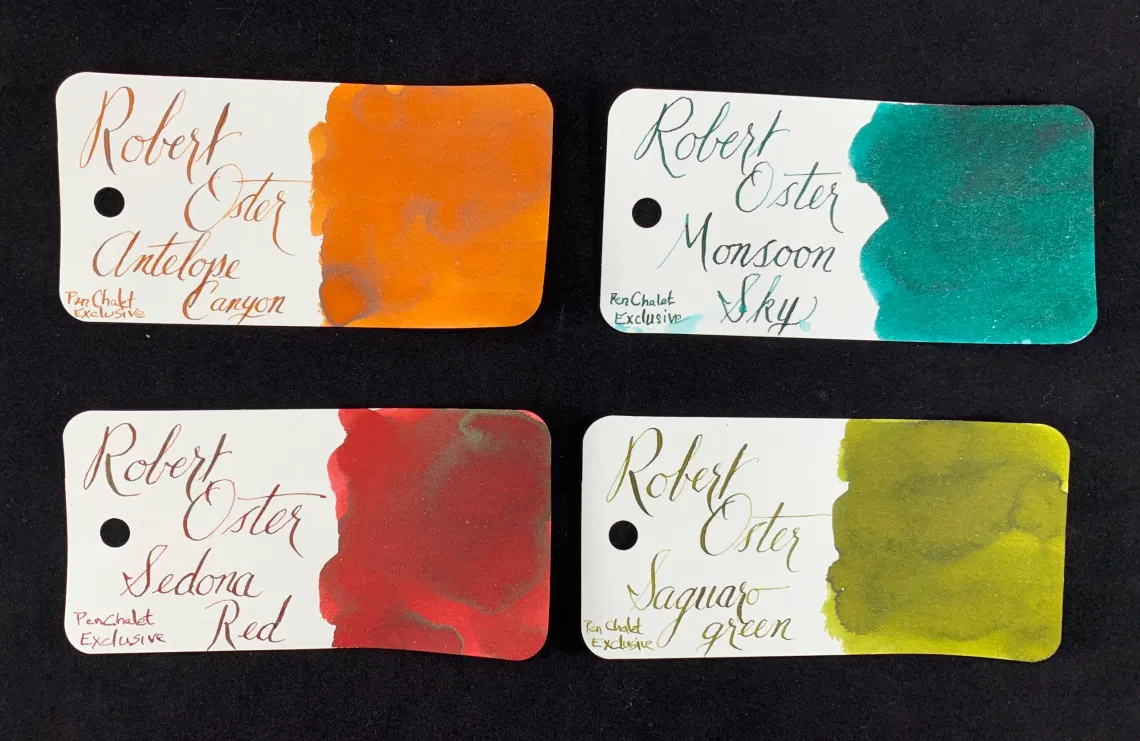 Robert
Oster
Antelope
Canyon
Pen Chalet
Exclusive
Robert
Oster
Monsoon
Sky
Pen Chalet
Exclusive
Robert
Oster
Sedona
Red
Pen Chalet
Exclusive
Robert
Oster
Saguaro
green
Pen Chalet
Exclusive